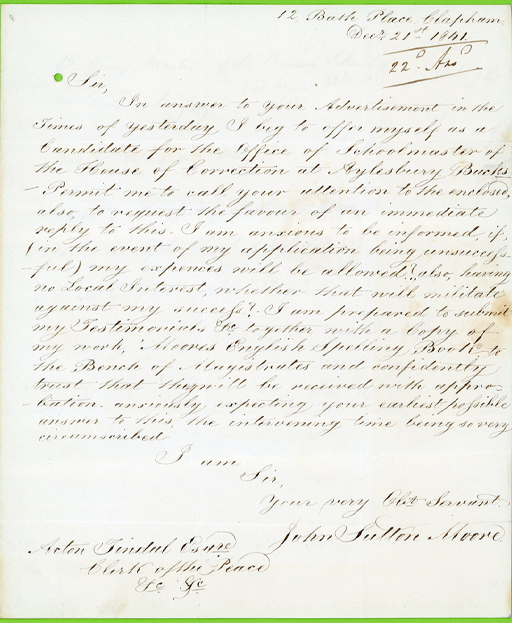 12 Bath Place Clapham
Decr 21st 1841
22d Ansd
Sir,
In answer to your Advertisement in the
Times of yesterday I beg to offer myself as a
Candidate for the Office of Schoolmaster of
the House of Correction at Aylesbury Bucks
- Permit me to call your attention to the enclosed,
also, to request the favour of an immediate
reply to this. I am anxious to be informed, if,
(in the event of my application being unsuccess-
-ful) my expences will be allowed? also, having
no Local Interest, whether that will militate
against my success? I am prepared to submit
my Testimonials &c together with a Copy of
my work, "Moores English Spelling Book" to
the Bench of Magistrates and confidently
trust that they will be received with appro-
-bation. anxiously expecting your earliest possible
answer to this, the intervening time being so very
circumscribed
I am
Sir,
Your very Obt Servant.
John Sutton Moore.
Acton Tindal Esqre
Clerk of the Peace
&c &c